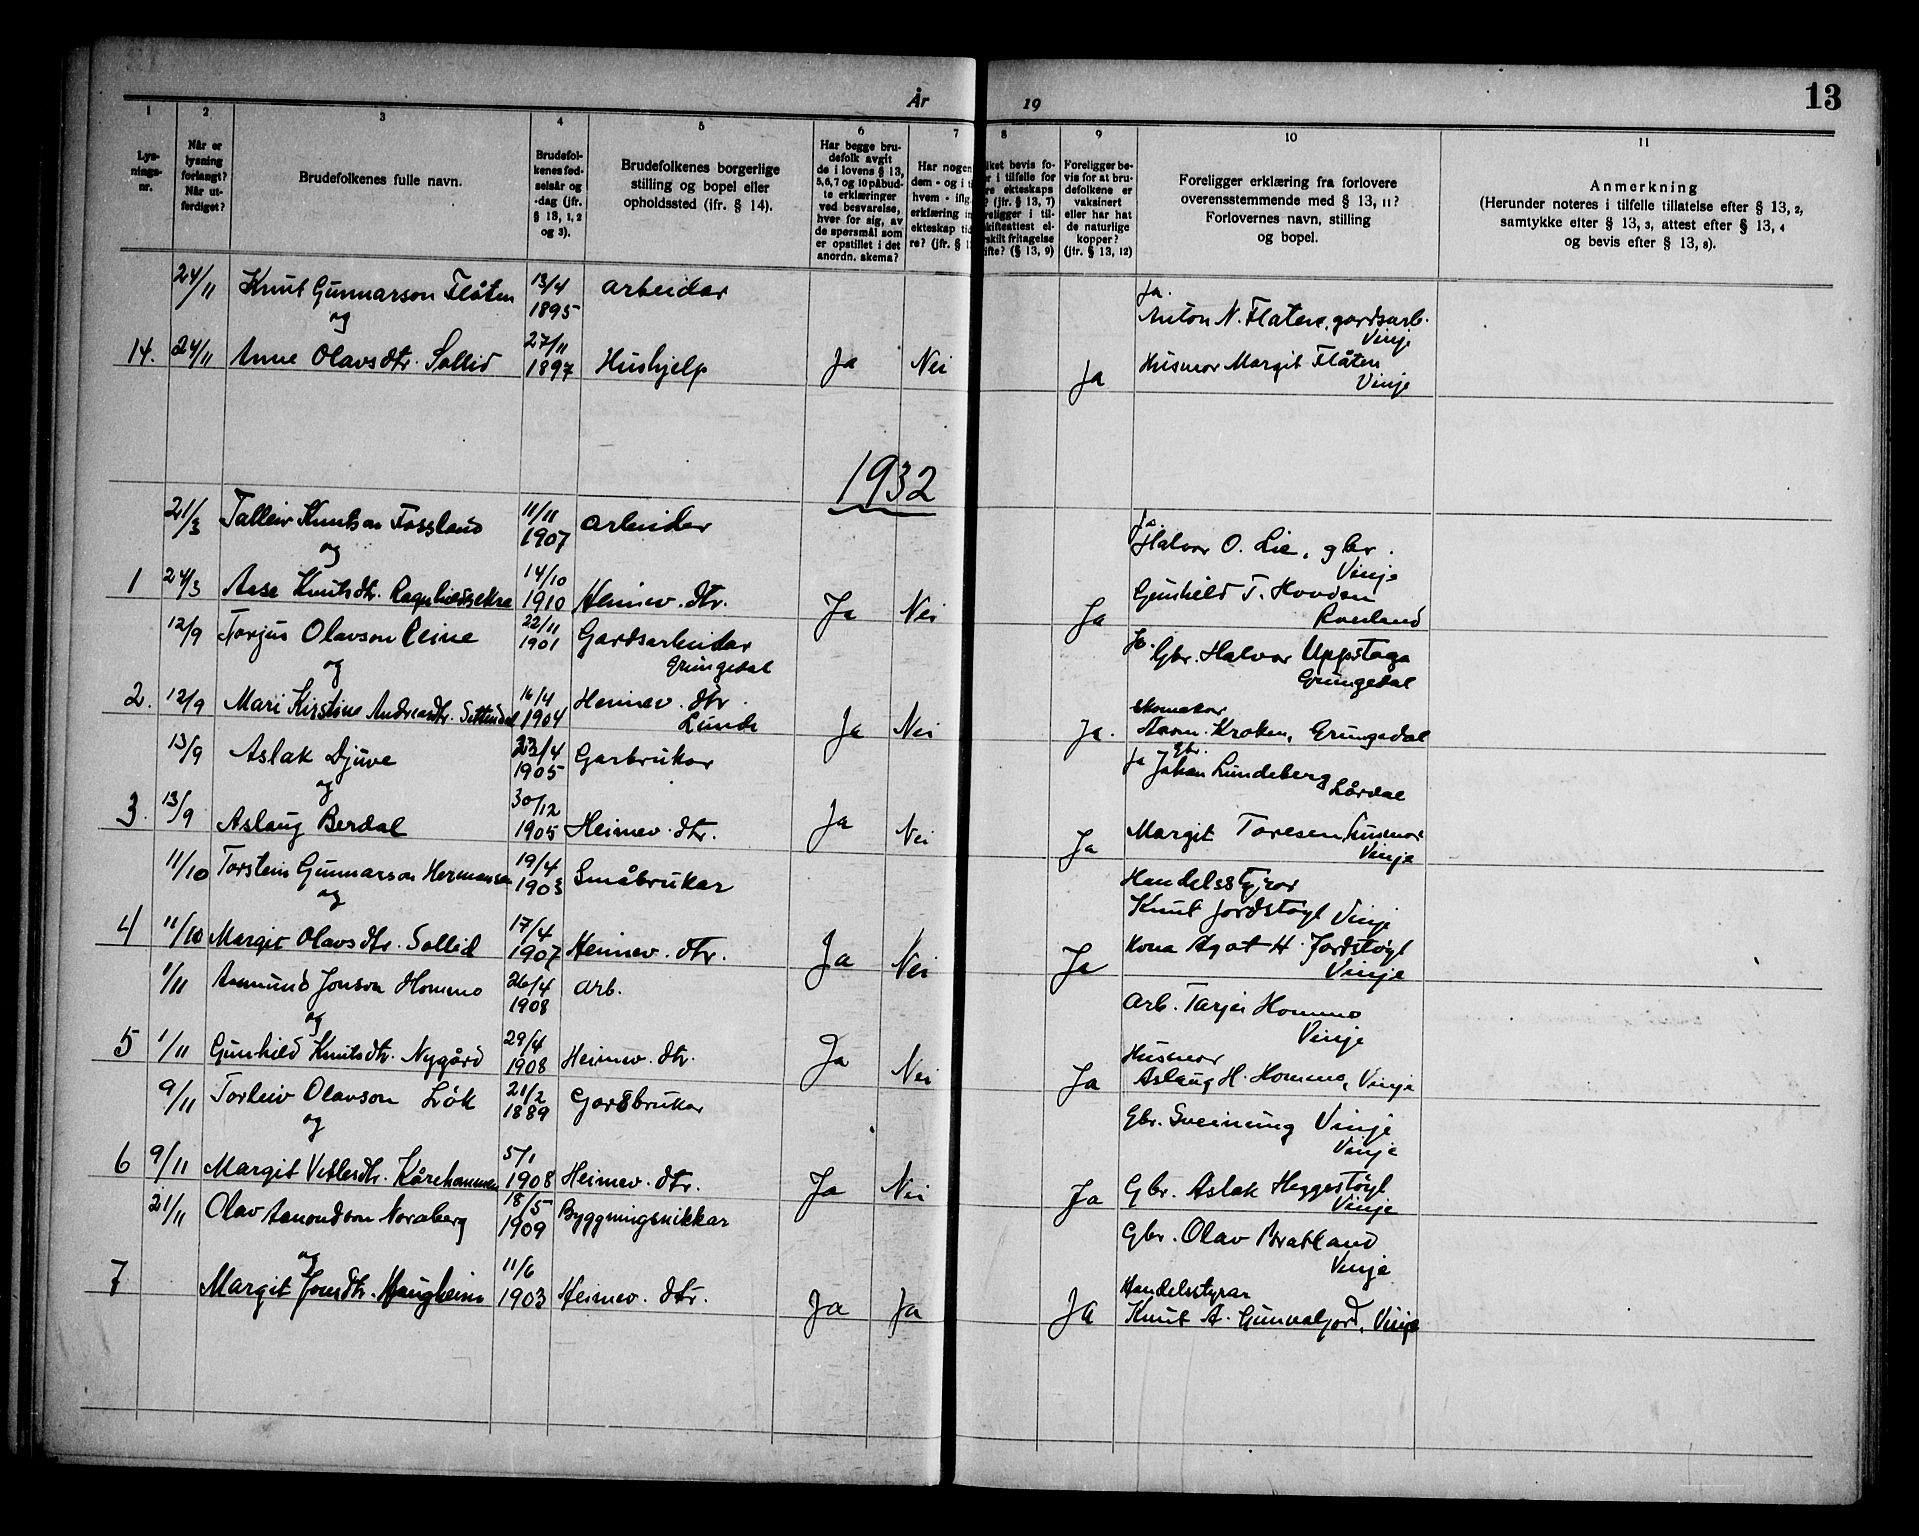 År 19
13
1 2 3 4 5 6 7 8 9 10 11
Lysningsnr.
Når er lysning forlangt? Når utferdiget?
Brudefolkenes fulle navn.
Brudefolkenes fødselsår og -dag (jfr. § 13, 1, 2 og 3).
Brudefolkenes borgerlige stilling og bopel eller opholdssted (ifr. § 14).
Har begge brudefolk avgit de i lovens § 13, 5, 6, 7 og 10 påbudte erklæringer ved besvarelse, hver for sig, av de spørsmål som er opstillet i det anordn. skema?
Har nogen
dem - og i t
hvem - iflg.
erklæring in
ekteskap tid
re? (jfr. § 1
lket bevis fo-
r i tilfelle for
re ekteskaps
? (jfr. § 13, 7)
religger i til-
kifteattest el-
skilt fritagelse
ifte? (§ 13, 9)
Foreligger bevis for at brudefolkene er vaksinert eller har hat de naturlige kopper? (jfr. § 13, 12)
Foreligger erklæring fra forlovere overensstemmende med § 13, 11? Forlovernes navn, stilling og bopel.
Anmerkning
(Herunder noteres i tilfelle tillatelse efter § 13, 2, samtykke efter § 13, 3, attest efter § 13, 4 og bevis efter § 13, 8).
24/11 Knut Gunnarson Flåten 13/4 1895 arbeidar Ja. Anton N. Flaten, gardsarb. Vinje
og
14. 24/11 Anne Olavsdtr. Sollid 27/11 1897 Hushjelp Ja Nei Ja Husmor Margit Flåten Vinje
1932
21/3 Talleiv Knutson Fossland 11/11 1907 arbeider Ja. Halvor O. Lie, gbr. Vinje
og
1 24/3 Aase Knutsdtr. 14/10 1910 Heimev. dtr. Ja Nei Ja Gunhild T. Hovden Rauland
12/9 Torjus Olavson Reine 22/11 1901 Gardsarbeidar Grungedal Ja. Gbr. Halvor Uppstoga Grungedal
og
2. 12/9 Mari Kirstine Andreasdtr. 16/4 1904 Heimev. dtr. Lunde Ja Nei Ja. skomakar Aasm. Kroken, Grungedal
13/9 Aslak Djuve 23/4 1905 Garbrukar Ja gbr. Johan Lundeberg Lårdal
og
3. 13/9 Aslaug Berdal 30/12 1905 Heimev. dtr. Ja Nei Ja Margit Toresen, husmor Vinje
11/10 Torstein Gunnarson Hermansen 19/4 1903 Småbrukar Handelsstyrar Knut Jordstøyl Vinje
og
4 11/10 Margit Olavsdtr. Sollid 17/4 1907 Heimev. dtr. Ja Nei Ja Kona Agot H. Jordstøyl Vinje
1/11 Aasmund Jonson Hommo 26/4 1908 arb. Arb. Tarjei Hommo Vinje
og
5 1/11 Gunhild Knutsdtr. Nygård 29/4 1908 Heimev. dtr. Ja Nei Ja Husmor Aslaug H. Hommo, Vinje
9/11 Torleiv Olavson Løk 21/2 1889 Gardsbrukar Gbr. Sveinung Vinje Vinje
og
6 9/11 Margit Vetlesdtr. Kårehommen 5/1 1908 Heimev. dtr. Ja Nei Ja Gbr. Aslak Heggestøyl Vinje
21/11 Olav Aamondson Noraberg 18/5 1909 Byggningsnikkar Gbr. Olav Bratland Vinje
og
7 Margit Jonsdtr. Haugheim 11/6 1903 Heimev. dtr. Ja Ja Ja Handelsstyrar Knut A. Gunvaljord, Vinje